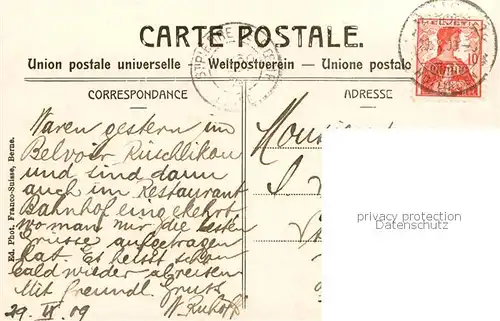 CARTE POSTALE.
Union postale universelle – Weltpostverein – Unione postale
CORRESPONDANCE
ADRESSE
Ed. Phot. Franco-Suisse, Berne.
Waren gestern im
Belvoir Rüschlikon
und sind dann
auch im Restaurant
Bahnhof eingekehrt
wo man mir die besten
Grüsse aufgetragen
hat. Es heisst schon
bald wieder abreisen
Mit freundl. Gruss
29. IX 09
HELVETIA
10
privacy protection
Datenschutz